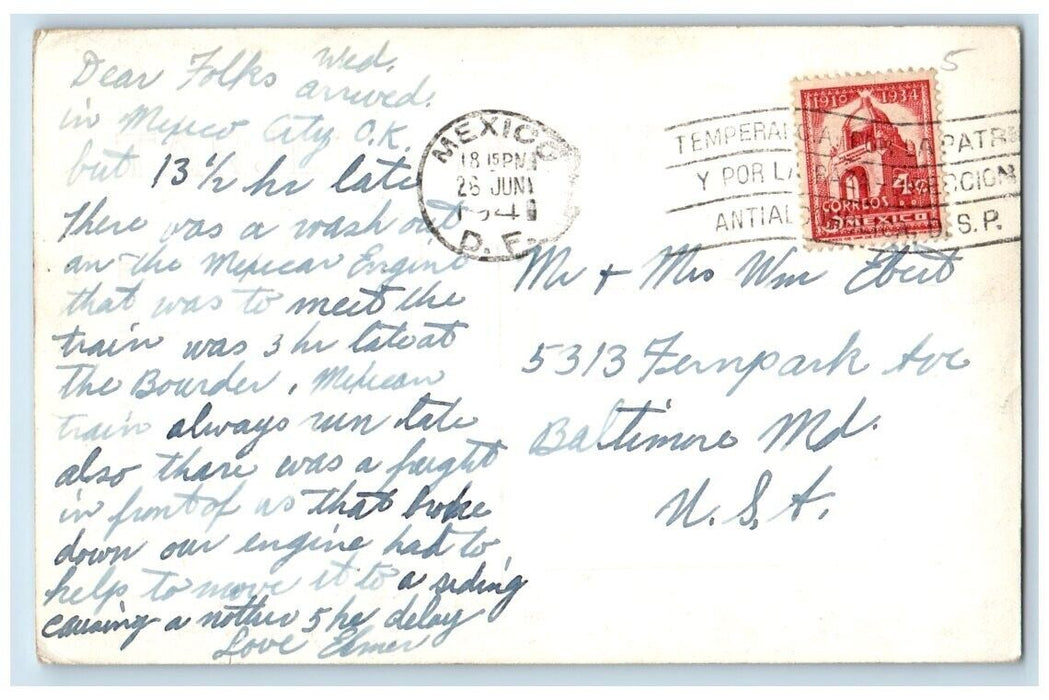 Dear Folks Wed.
arrived.
in Mexico City O.K.
but 13 1/2 hr late
There was a wash out
an the Mexican Engine
that was to meet the
train was 3 hr late at
the Bourder, Mexican
train always run late
also thare was a freight
in front of us that broke
down our engine had to
help to move it to a siding
causing a nother 5 hr delay
Love Elmer
5
MEXICO
18 15 PM
26 JUN
194
D. F.
1910 1934
4¢
CORREOS
MEXICO
Y POR LA
S.P.
Mr + Mrs Wm Ebert
5313 Fernpark Ave
Baltimore Md.
U.S.A.